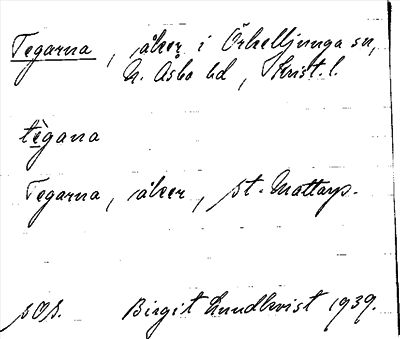 Tegarna, åker i Örkelljunga sn,
N. Åsbo hd, Krist. l.
tègana
Tegarna, åker, St. Mattarp.
sOs. Birgit Lundkvist 1939.